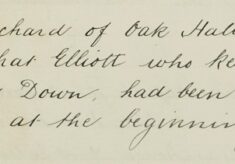 chard of Oak Hal
hat Elliott who ke
Down, had been
at the beginnin